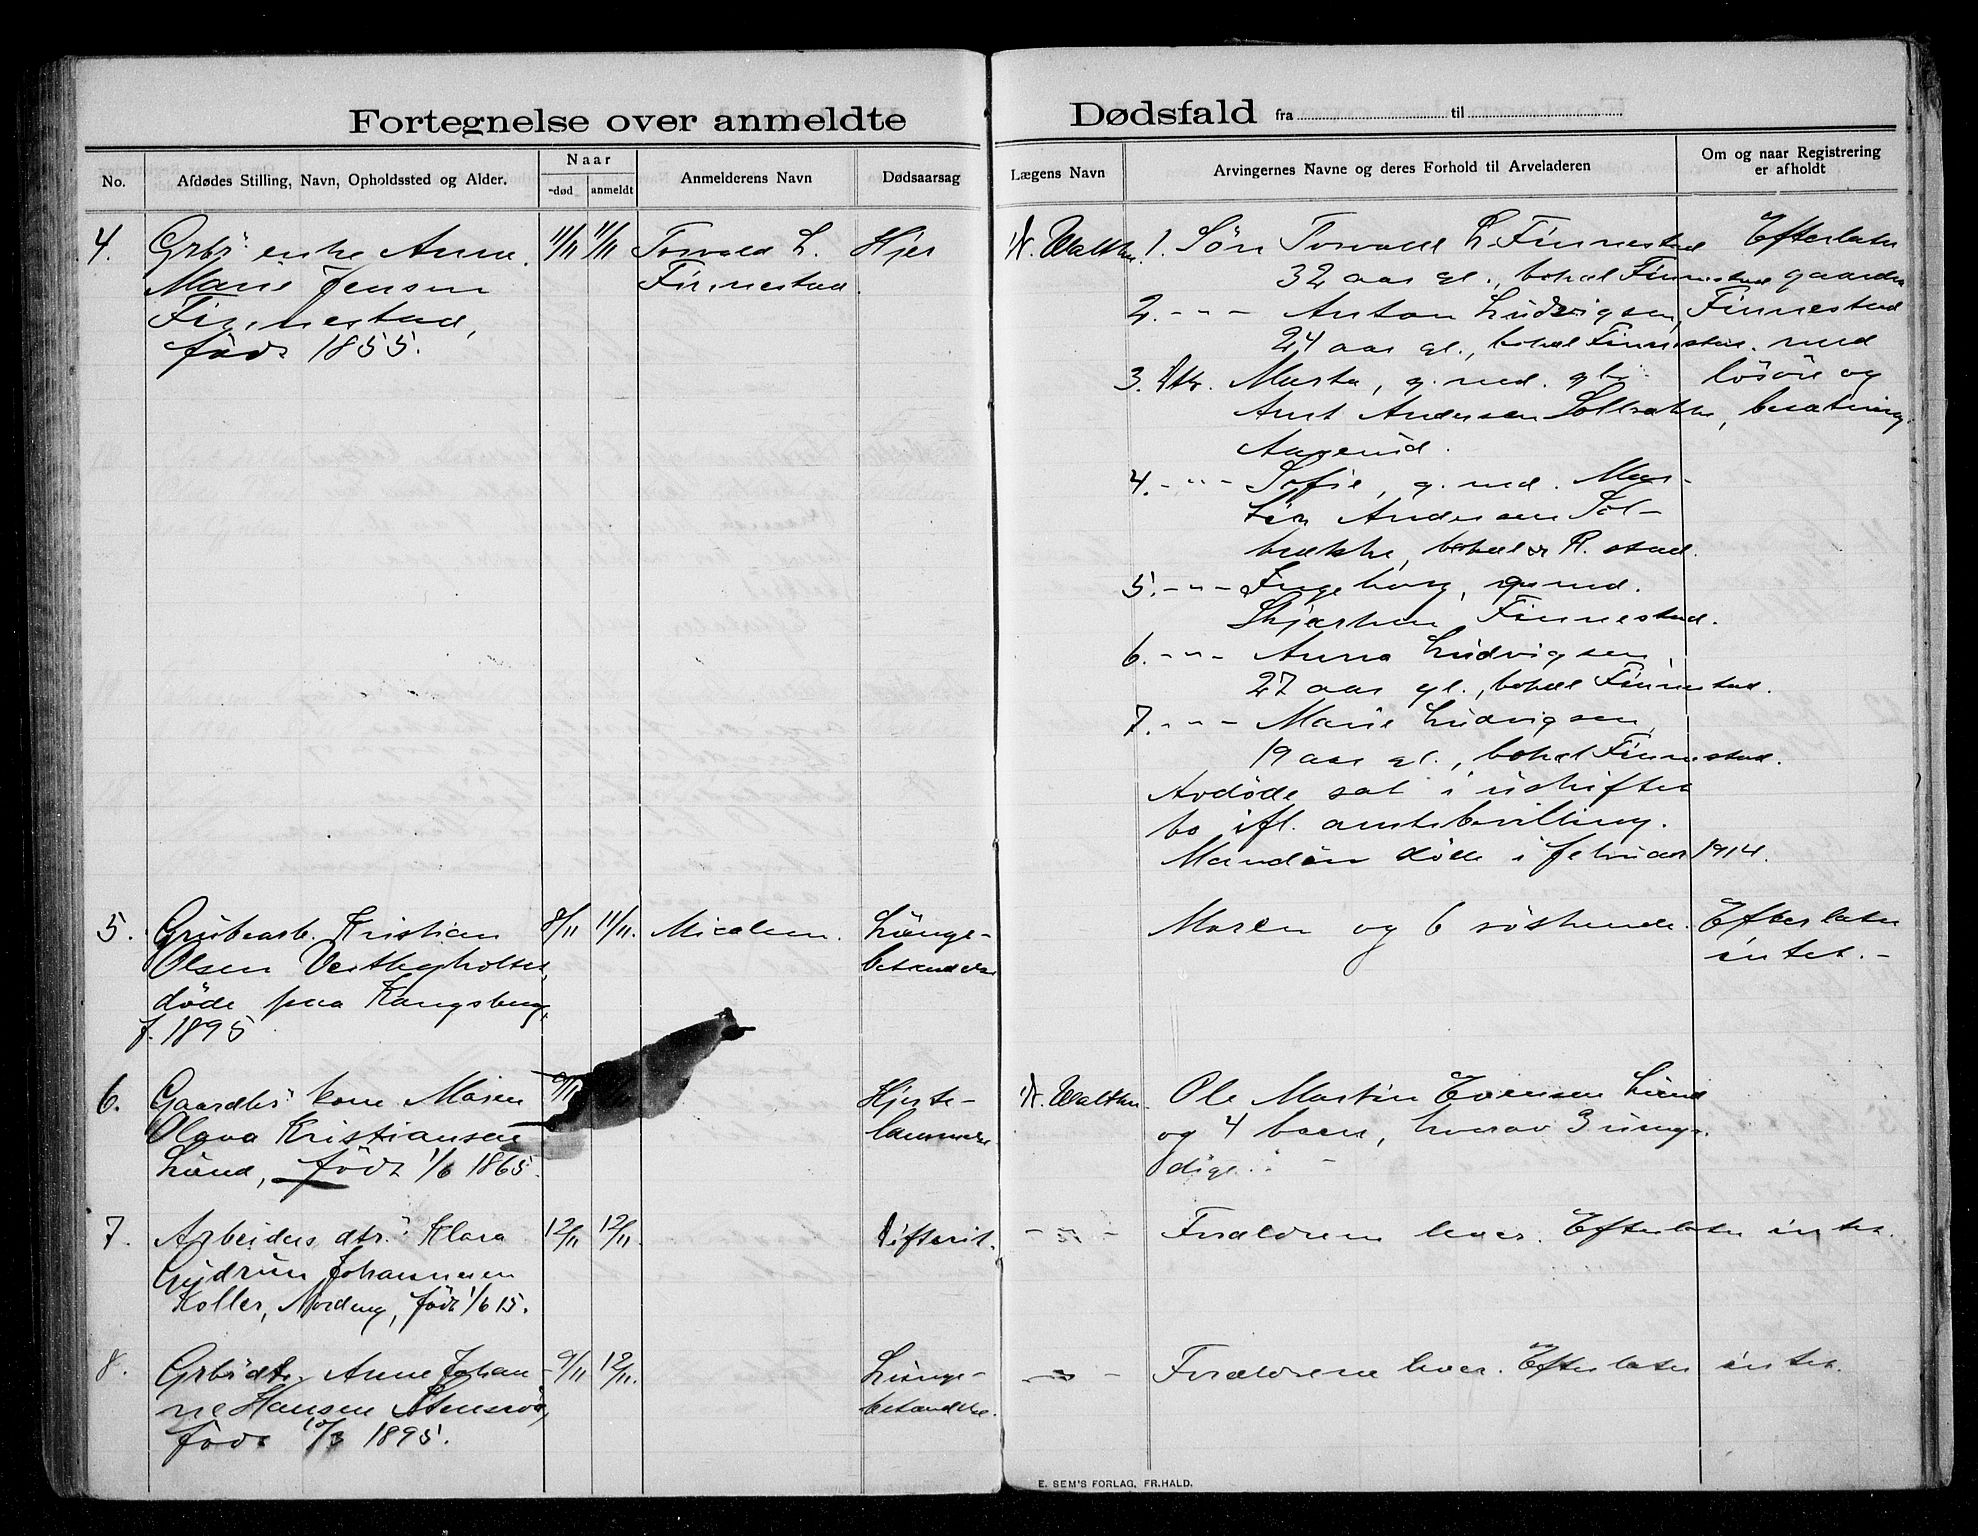 Fortegnelse over anmeldte Dødsfald fra til
No.
Afdødes Stilling, Navn, Opholdssted og Alder.
Naar
død
anmeldt
Anmelderens Navn
Dødsaarsag
Lægens Navn
Arvingernes Navne og deres Forhold til Arveladeren
Om og naar Registrering
er afholdt
4.
Grbr. enke Anne
Marie Jensen
Finnestad,
født 1855.
11/11
11/11
Torvald L.
Finnestad.
Hjer
N. Walthr.
1. Søn Torvald L. Finnestad
32 aar gl., bohæl Finnestad
2. -"- Anton Ludvigsen,
24 aar gl., bohæl Finnestad.
3. Dtr. Marta, g. med gbr.
Arnt Andersen Solbrække,
Aagerud.
4. -"- Sofie, g. med Mar-
tin Andersen Sol-
brække, bohæl R.stad.
5. -"- Ingeborg, g. med
Finnestad.
6. -"- Anna Ludvigsen,
27 aar gl., bohæl Finnestad.
7. -"- Marie Ludvigsen,
19 aar gl., bohæl Finnestad.
Avdøde sat i uskiftet
bo ifl. amtsbevilling.
Manden døde i februar 1914.
Efterlater
gaarden
Finnestad
med
løsøre og
besætning.
5.
Grubearb. Kristian
Olsen
døde paa Kongsberg,
f. 1895
8/11
11/11.
Micalsen.
Lunge-
betændelse
Moren og 6 søskende.
Efterlater
intet. -
6.
Gaardbr. kone Maren
Olava Kristiansen
Lund, født 1/6 1865.
9/11
Hjerte-
lammelse
N. Walthr.
Ole Martin Evensen Lund
og 4 barn, hvorav 3 umyn-
dige. -
7.
Arbeiders dtr. Klara
Gudrun Johannesen
Koller, Nordeng, født 1/6 15.
12/11
12/11.
Difterit.
- " -
Forældrene lever. Efterlater intet.
8.
Grbrdtr. Anne Johan-
ne Hansen
født 10/3 1895.
9/11
12/11.
Lunge-
betændelse.
- " -
Forældrene lever. Efterlater intet.
E. SEM'S FORLAG, FR.HALD.